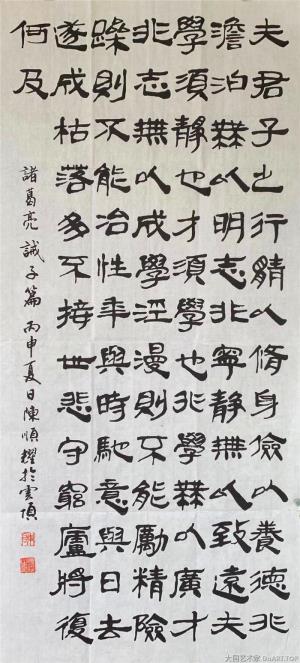 夫君子之行靜以脩身儉以養德非
澹泊無以明志非寧靜無以致遠夫
學須靜也才須學也非學無以廣才
非志無以成學淫漫則不能勵精險
躁則不能冶性年與時馳意與日去
遂成枯落多不接世悲守窮廬將復
何及
諸葛亮 誡子篇 丙申夏日陳順耀於雲頂
大国艺术家 DGART.TOP